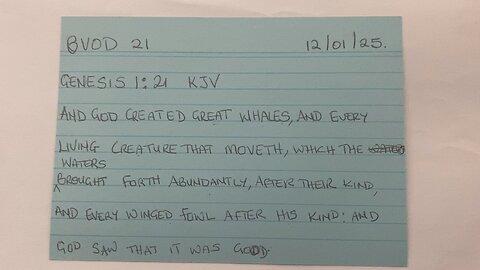 BVOD 21 12/01/25.
GENESIS 1:21 KJV
AND GOD CREATED GREAT WHALES, AND EVERY
LIVING CREATURE THAT MOVETH, WHICH THE
WATERS
BROUGHT FORTH ABUNDANTLY, AFTER THEIR KIND,
AND EVERY WINGED FOWL AFTER HIS KIND: AND
GOD SAW THAT IT WAS GOOD.